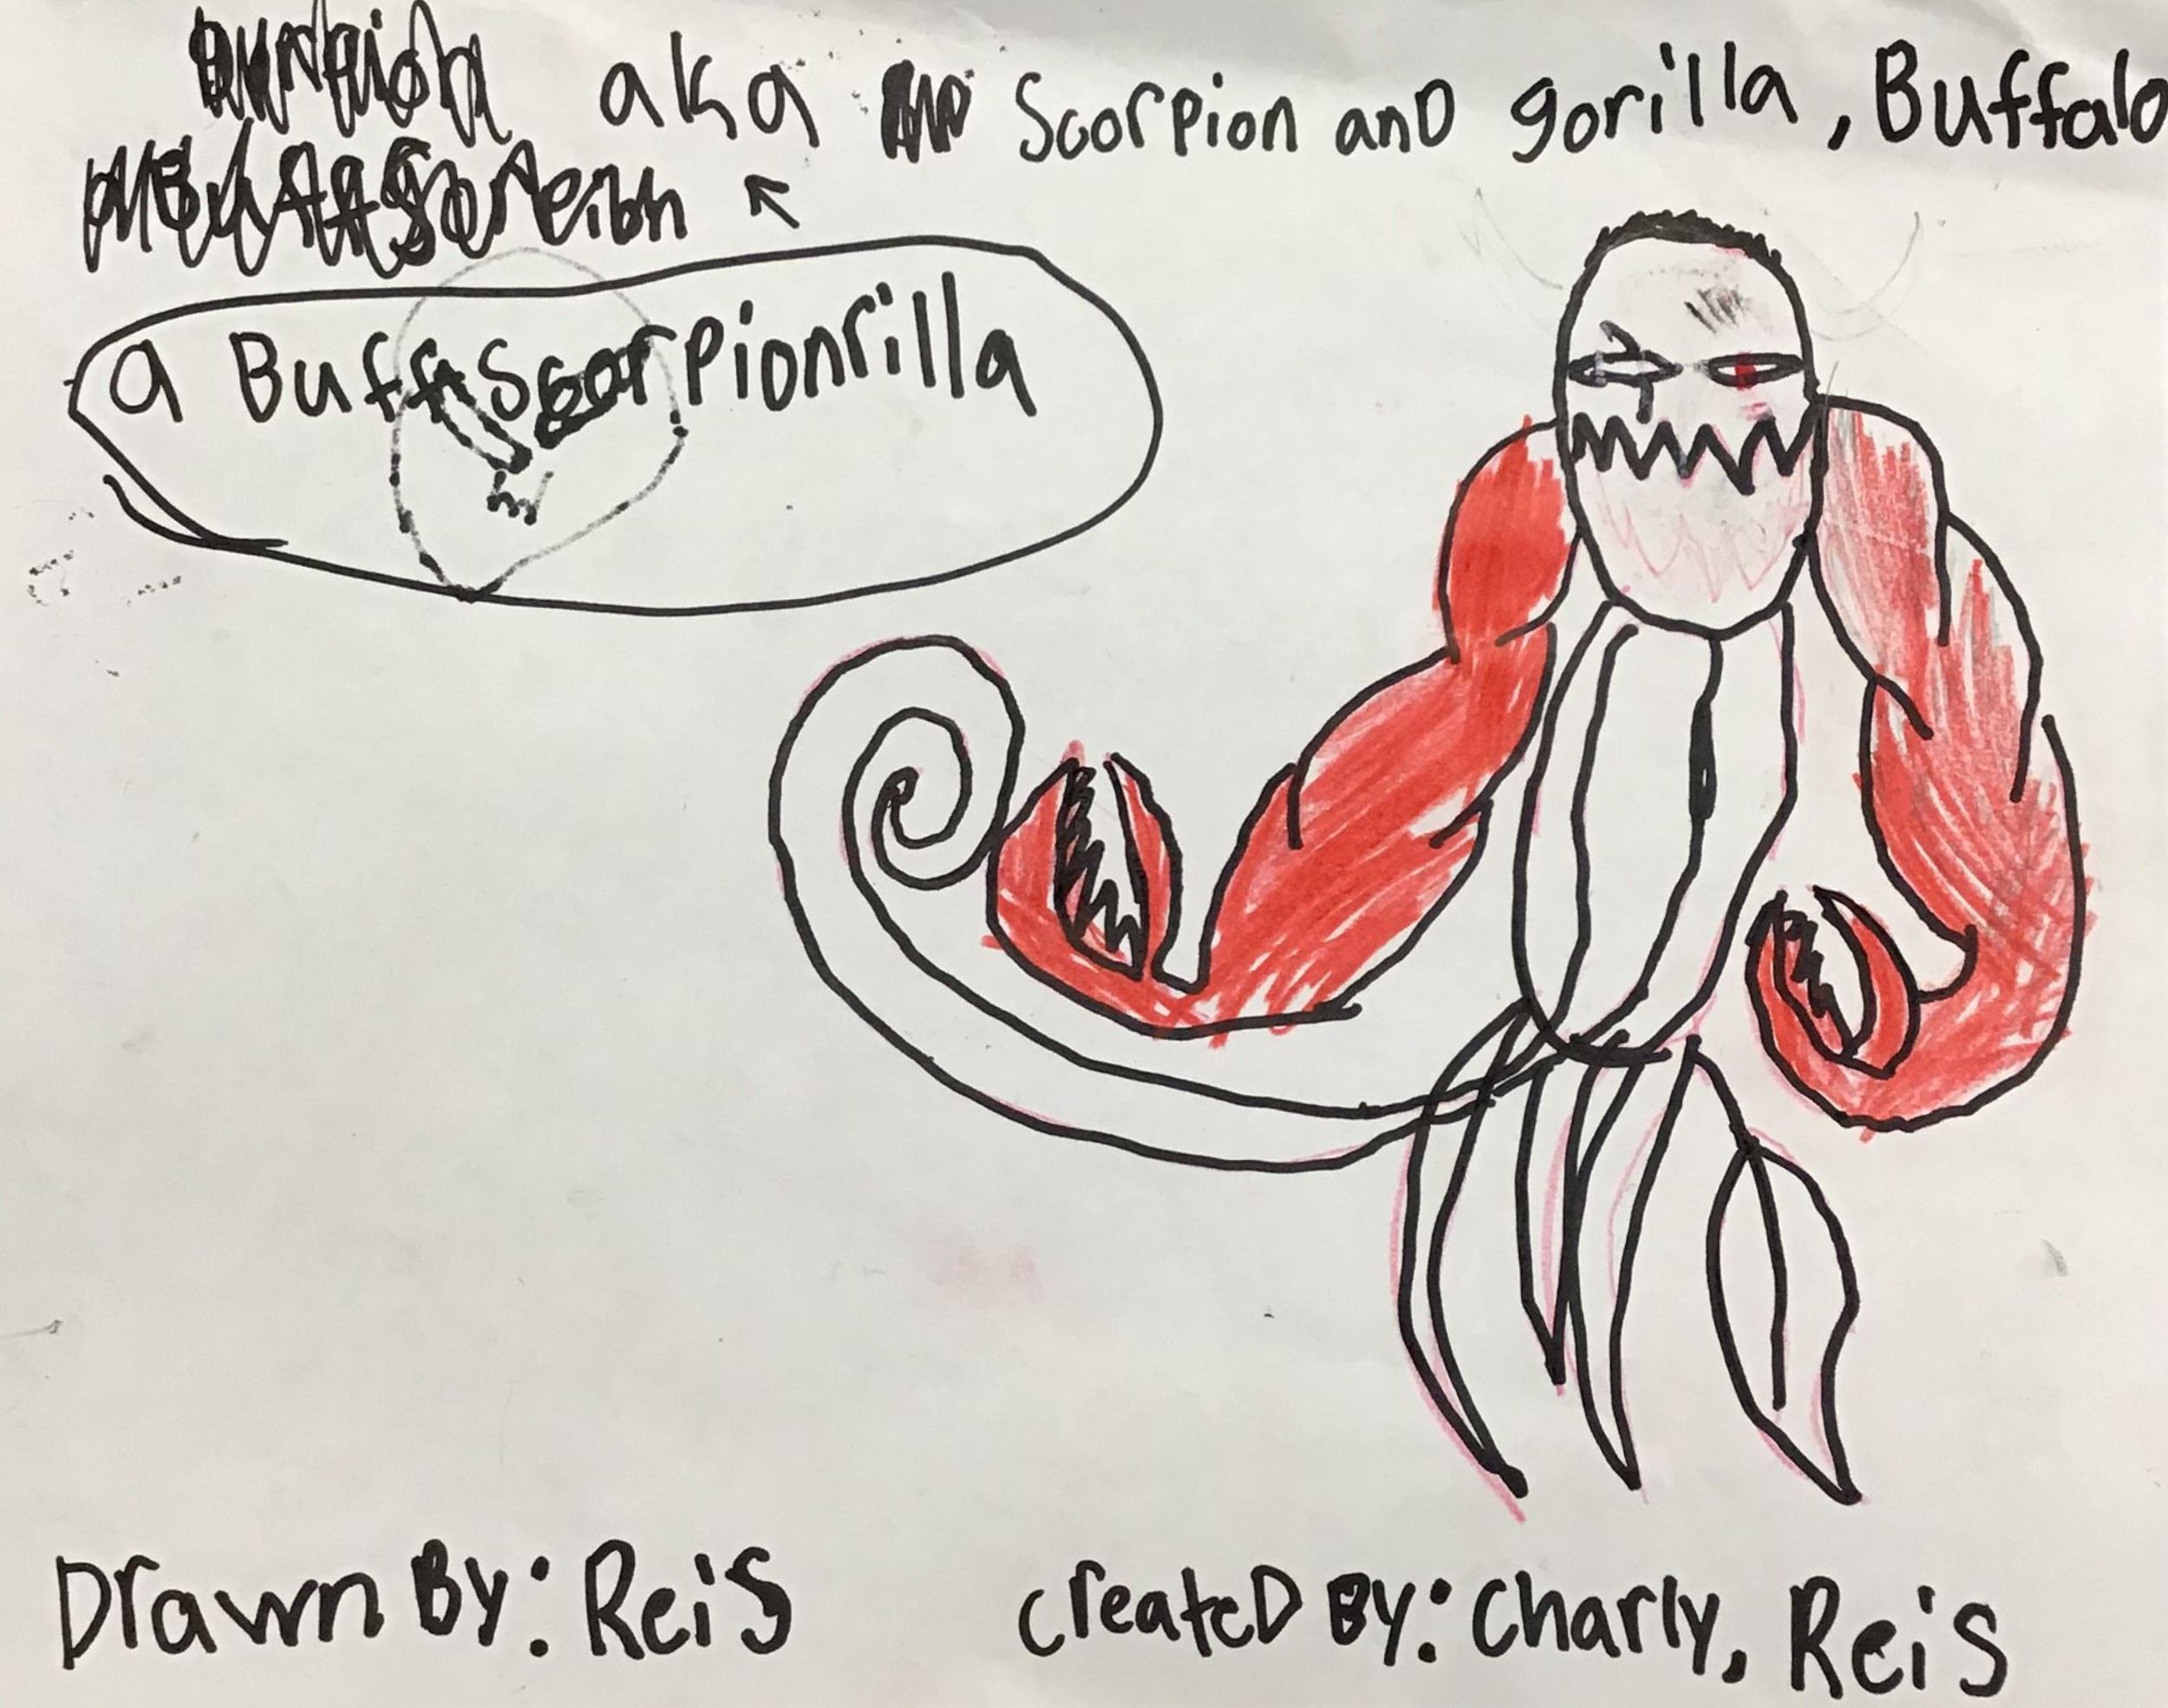 aka Scorpion anD gorilla, Buffalo
a BuffScorpionrilla
Drawn By: Reis
createD By: Charly, Reis